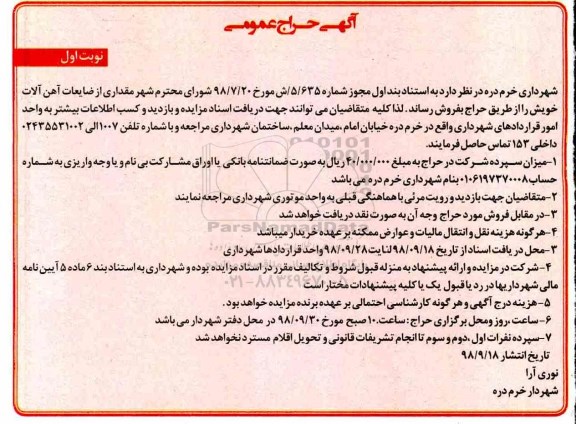 آگهی حراج عمومی
نوبت اول
شهرداری خرم دره در نظر دارد به استناد بند اول مجوز شماره ۵/۶۳۵/ش مورخ ۹۸/۷/۲۰ شورای محترم شهر مقداری از ضایعات آهن آلات
خویش را از طریق حراج بفروش رساند. لذا کلیه متقاضیان می توانند جهت دریافت اسناد مزایده و بازدید و کسب اطلاعات بیشتر به واحد
امور قراردادهای شهرداری واقع در خرم دره خیابان امام ،میدان معلم ،ساختمان شهرداری مراجعه و با شماره تلفن ۱۰۰۷الی ۰۲۴۳۵۵۳۱۰۰۲
داخلی ۱۵۳ تماس حاصل فرمایند.
۱-میزان سپرده شرکت در حراج به مبلغ ۴۰/۰۰۰/۰۰۰ ریال به صورت ضمانتنامه بانکی یا اوراق مشارکت بی نام و یا وجه واریزی به شماره
حساب ۰۱۰۶۱۹۷۳۷۰۰۰۸ بنام شهرداری خرم دره می باشد
۲-متقاضیان جهت بازدید و رویت مرئی با هماهنگی قبلی به واحد موتوری شهرداری مراجعه نمایند
۳-در مقابل فروش مورد حراج وجه آن به صورت نقد دریافت خواهد شد
۴-هرگونه هزینه نقل و انتقال مالیات و عوارض ممکنه بر عهده خریدار میباشد
۳-محل دریافت اسناد از تاریخ ۹۸/۰۹/۱۸لغایت ۹۸/۰۹/۲۸واحد قراردادها شهرداری
۴-شرکت در مزایده و ارائه پیشنهاد به منزله قبول شروط و تکالیف مقرر در اسناد مزایده بوده و شهرداری به استناد بند ۶ماده ۵ آیین نامه
مالی شهرداریها در رد یا قبول یک یا کلیه پیشنهادات مختار است
۵-هزینه درج آگهی و هرگونه کارشناسی احتمالی بر عهده برنده مزایده خواهد بود.
۶-ساعت ،روز و محل برگزاری حراج :ساعت۱۰صبح مورخ ۹۸/۰۹/۳۰ در محل دفتر شهردار می باشد
۷-سپرده نفرات اول ،دوم و سوم تا انجام تشریفات قانونی و تحویل اقلام مسترد نخواهد شد
تاریخ انتشار ۹۸/۹/۱۸
نوری آرا
شهردار خرم دره
ParsNamadData
۰۲۱-۸۸۳۴۹۶۷۰